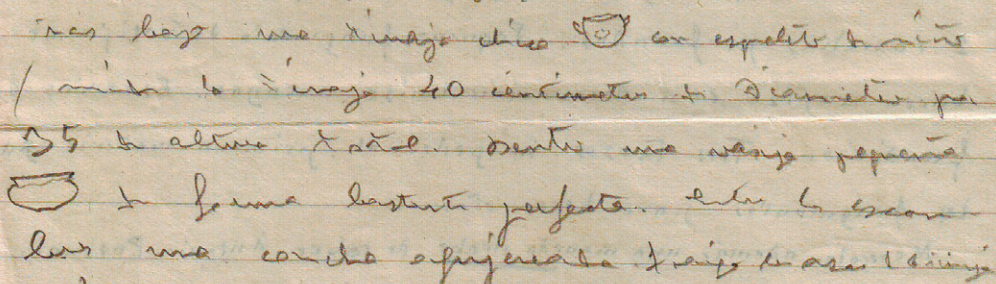 más bajo una tinaja chica con esqueleto de niño
/ mide la tinaja 40 centimetros de Diametro por
35 de altura total. Dentro una vasija pequeña
de forma bastante perfecta. Entre los escom
bros una concha agujereada